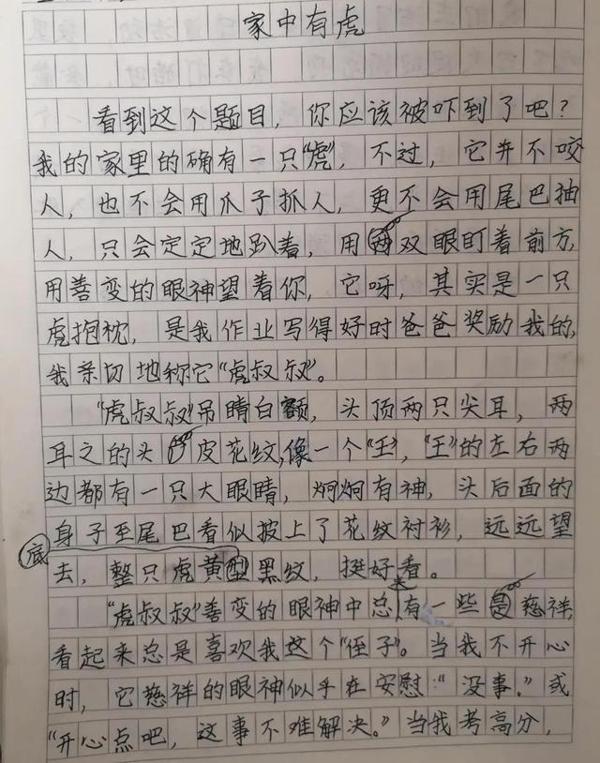 家中有虎
看到这个题目，你应该被吓到了吧？
我的家里的确有一只“虎”，不过，它并不咬
人，也不会用爪子抓人，更不会用尾巴抽
人，只会定定地趴着，用双眼盯着前方，
用善变的眼神望着你，它呀，其实是一只
虎抱枕，是我作业写得好时爸爸奖励我的，
我亲切地称它“虎叔叔”。
“虎叔叔”吊睛白额，头顶两只尖耳，两
耳之的头皮花纹，像一个“王”，“王”的左右两
边都有一只大眼睛，炯炯有神，头后面的
身子至尾巴看似披上了花纹衬衫，远远望
去，整只虎黄底黑纹，挺好看。
“虎叔叔”善变的眼神中总有一些慈祥
看起来总是喜欢我这个“侄子”。当我不开心
时，它慈祥的眼神似乎在安慰：“没事。”或
“开心点吧，这事不难解决。”当我考高分，